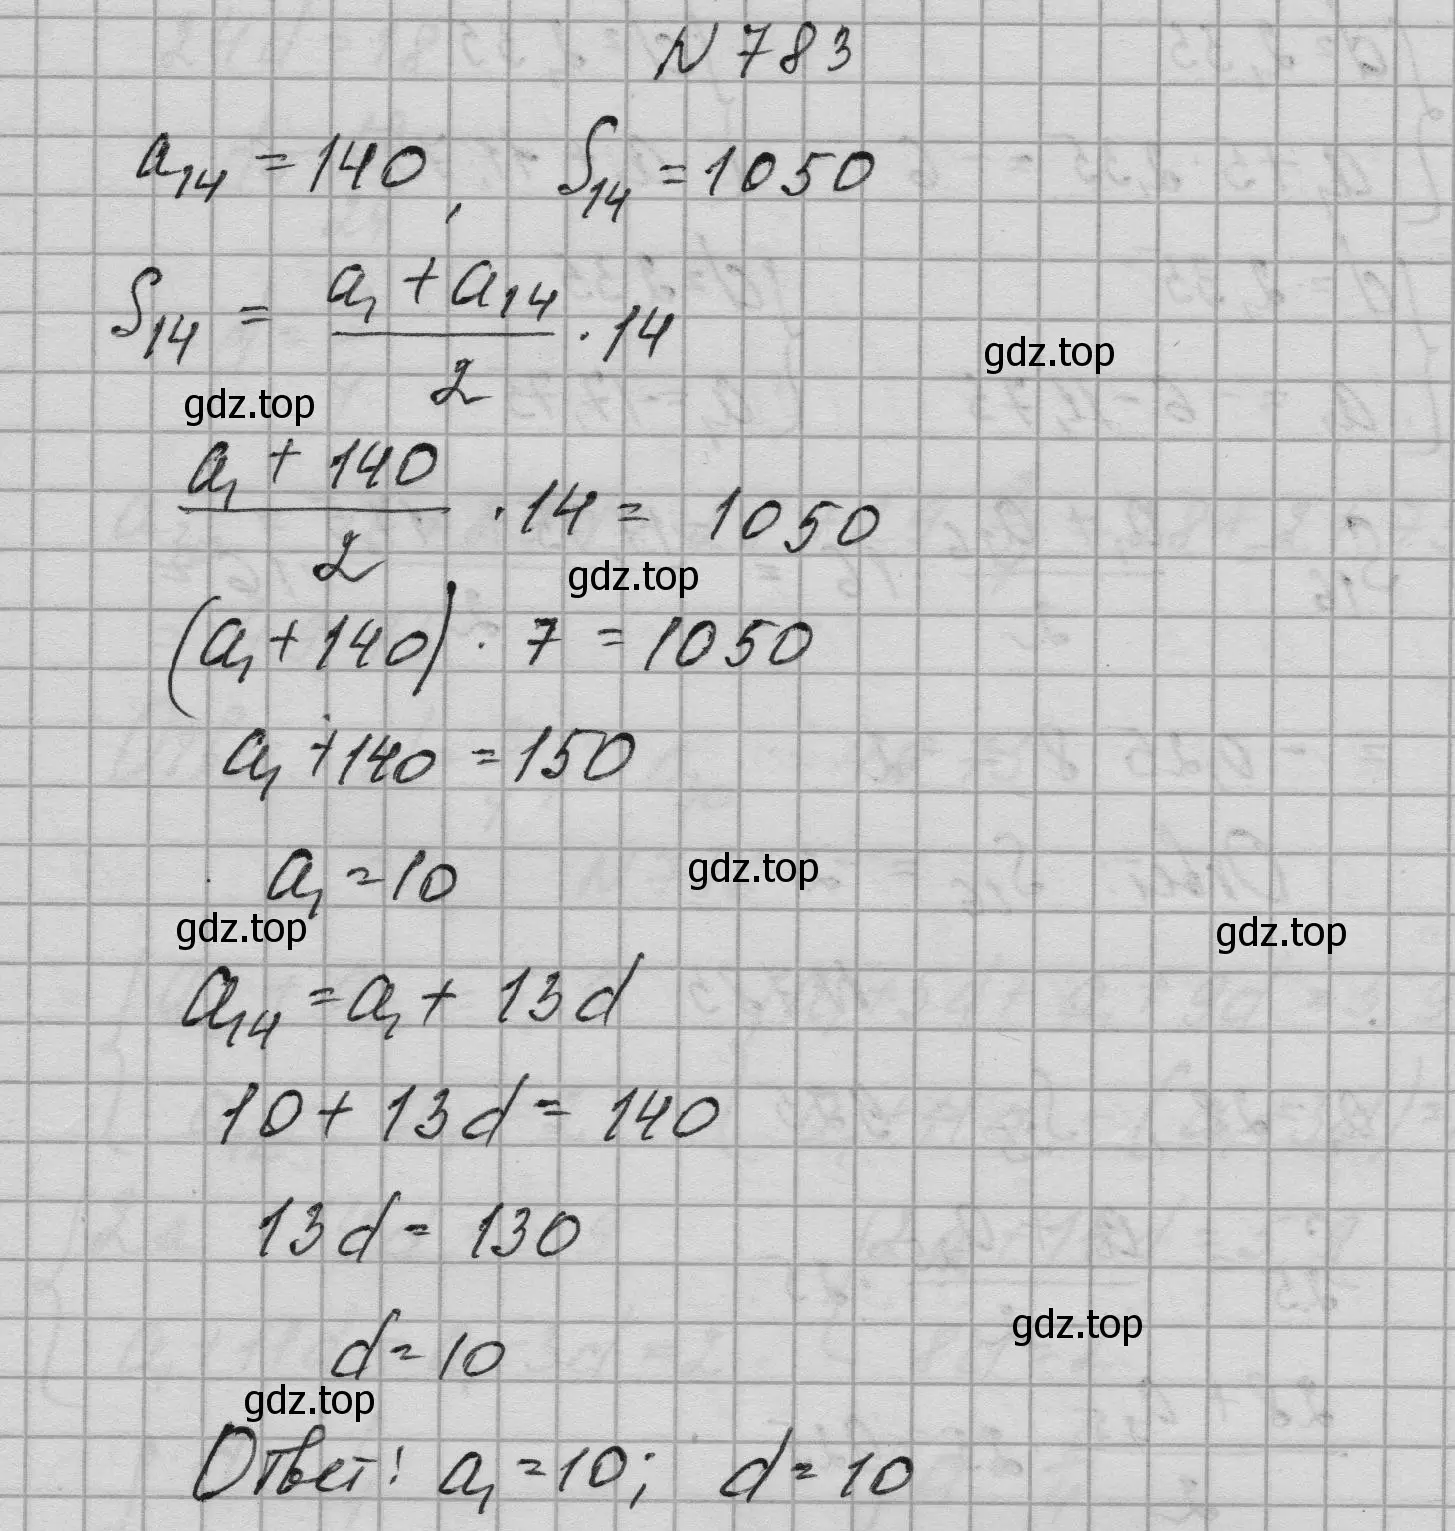 N 783
a₁₄ = 140, S₁₄ = 1050
S₁₄ = (a₁ + a₁₄)/2 · 14
gdz.top
gdz.top
(a₁ + 140)/2 · 14 = 1050
gdz.top
(a₁ + 140) · 7 = 1050
a₁ + 140 = 150
a₁ = 10
gdz.top
gdz.top
gdz.top
a₁₄ = a₁ + 13d
10 + 13d = 140
13d = 130
gdz.top
d = 10
gdz.top
Ответ: a₁ = 10; d = 10